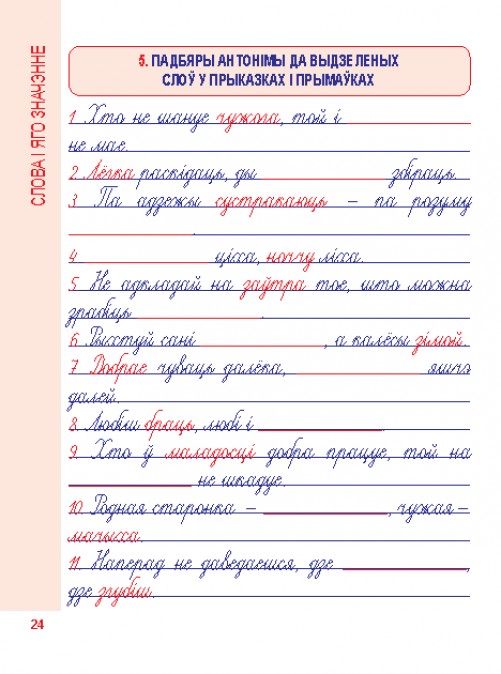 СЛОВА І ЯГО ЗНАЧЭННЕ
5. ПАДБЯРЫ АНТОНІМЫ ДА ВЫДЗЕЛЕНЫХ
СЛОЎ У ПРЫКАЗКАХ І ПРЫМАЎКАХ
1. Хто не шануе чужога, той і
не мае.
2. Лёгка раскідаць, ды збіраць.
3. Па адзежы сустракаюць – па розуму
.
4. ціхса, ноччу ліхса.
5. Не адкладай на заўтра тое, што можна
зрабіць .
6. Рыхтуй сані , а калёсы зімой.
7. Добрае чуваць далёка, яшчэ
далей.
8. Любіш браць, любі і .
9. Хто ў маладосці добра працуе, той на
не шкадуе.
10. Родная старонка – , чужая –
мачыха.
11. Наперад не даведаешся, дзе ,
дзе згубіш.
24